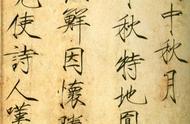 中秋月
中秋特地圓
鮮因懷勝
免使詩人嘆